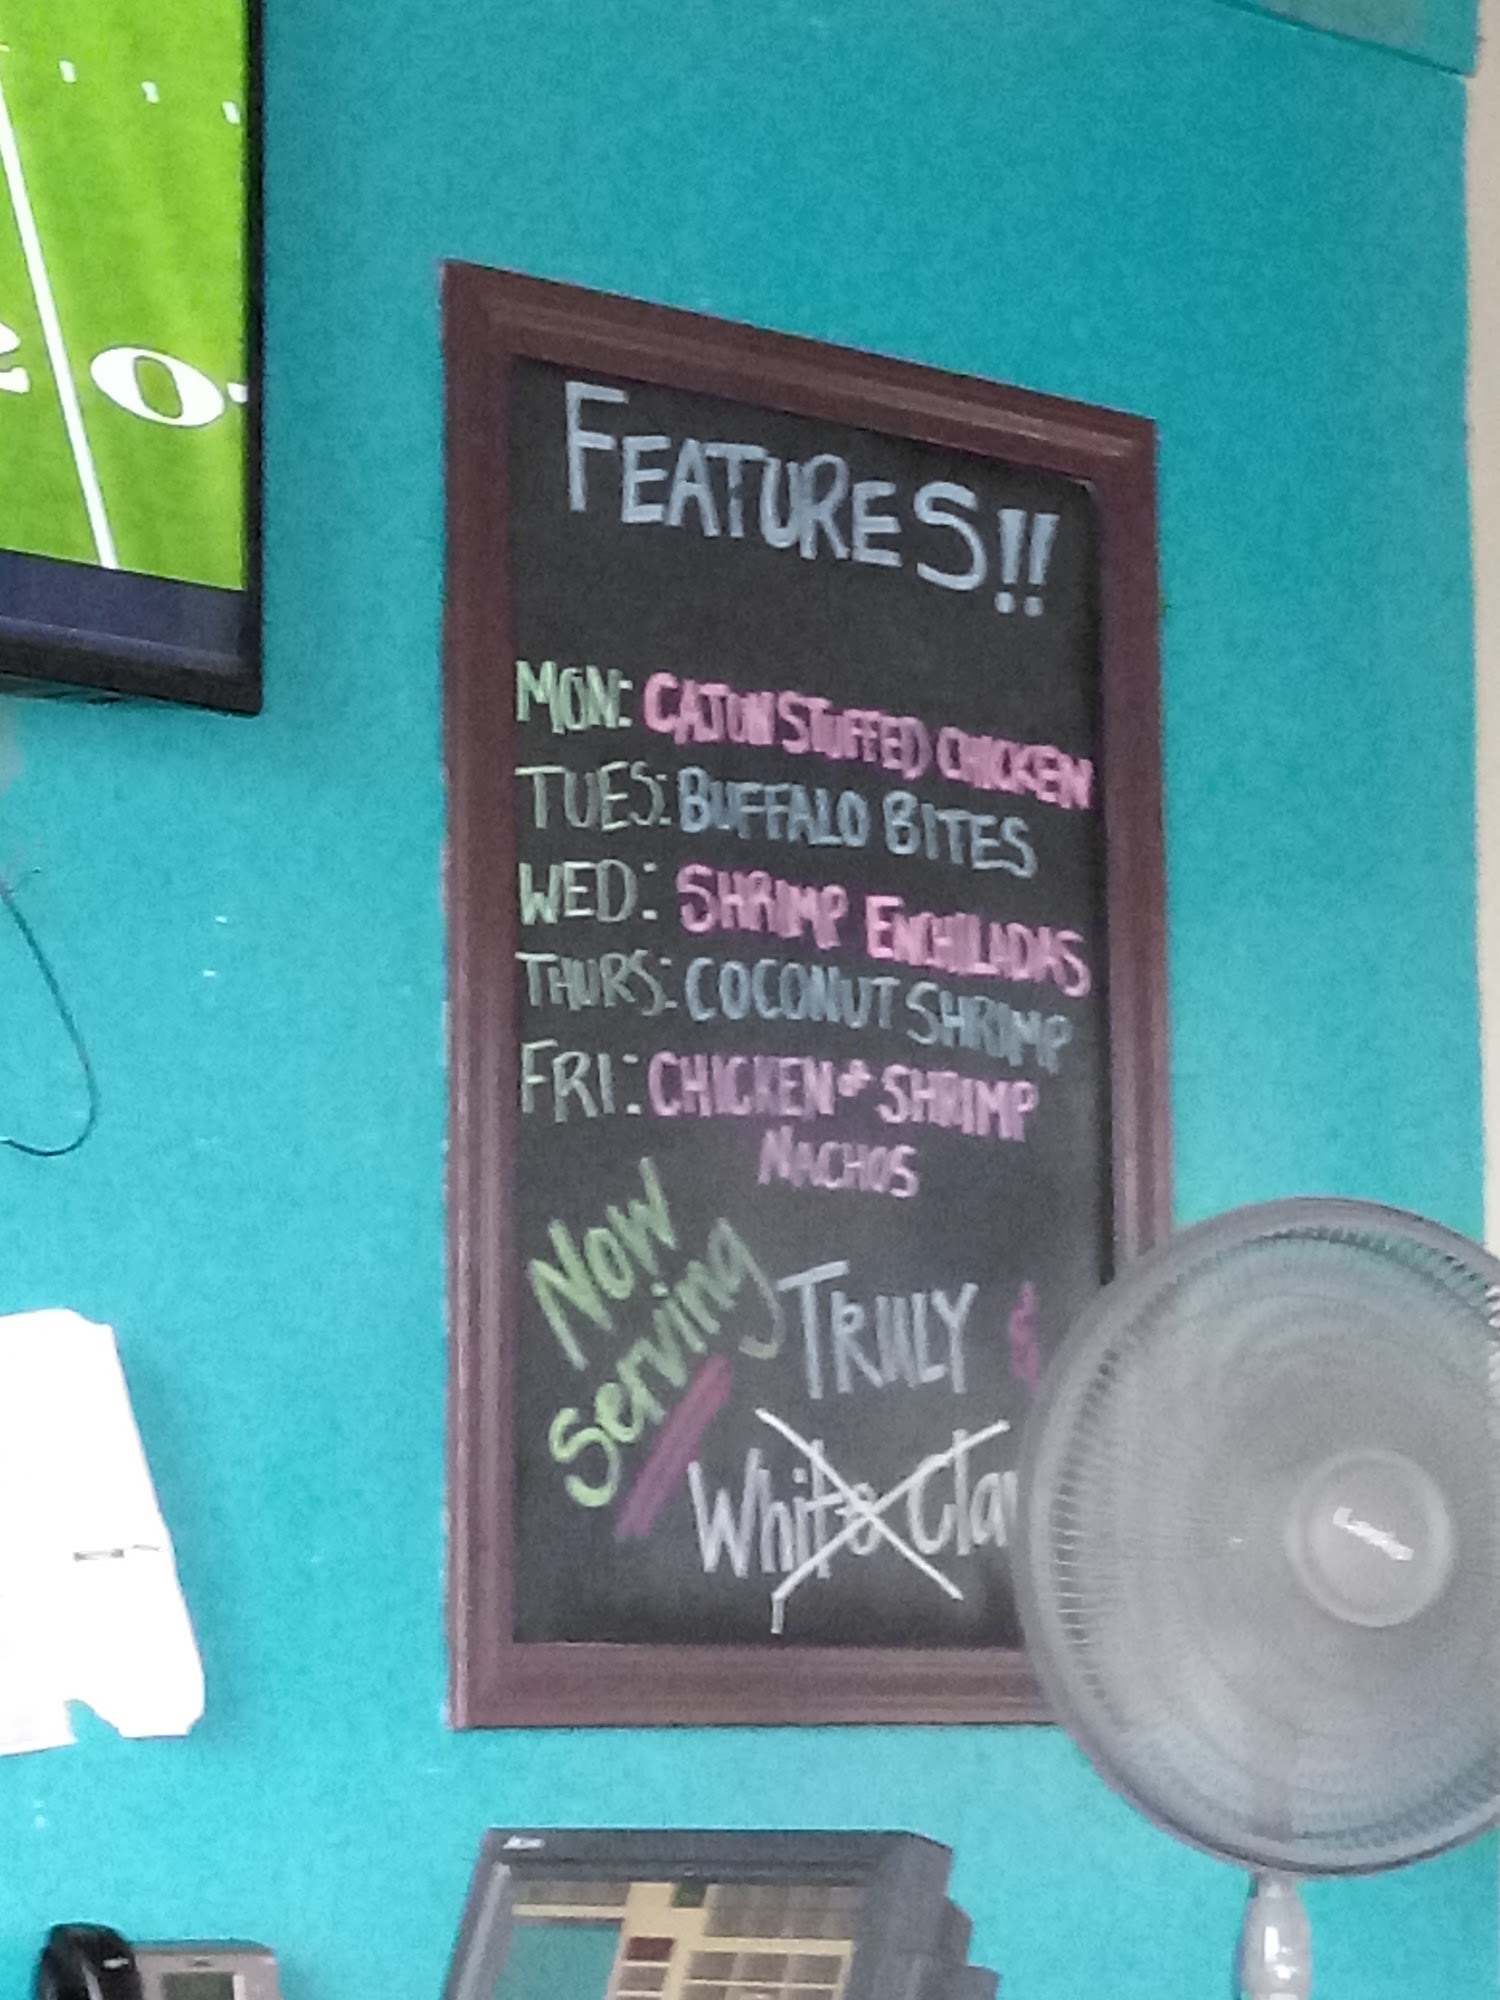 FEATURES!!
MON: CAJUN STUFFED CHICKEN
TUES: BUFFALO BITES
WED: SHRIMP ENCHILADAS
THURS: COCONUT SHRIMP
FRI: CHICKEN & SHRIMP
NACHOS
Now
Serving
TRULY &
White Cla
Lasko
0